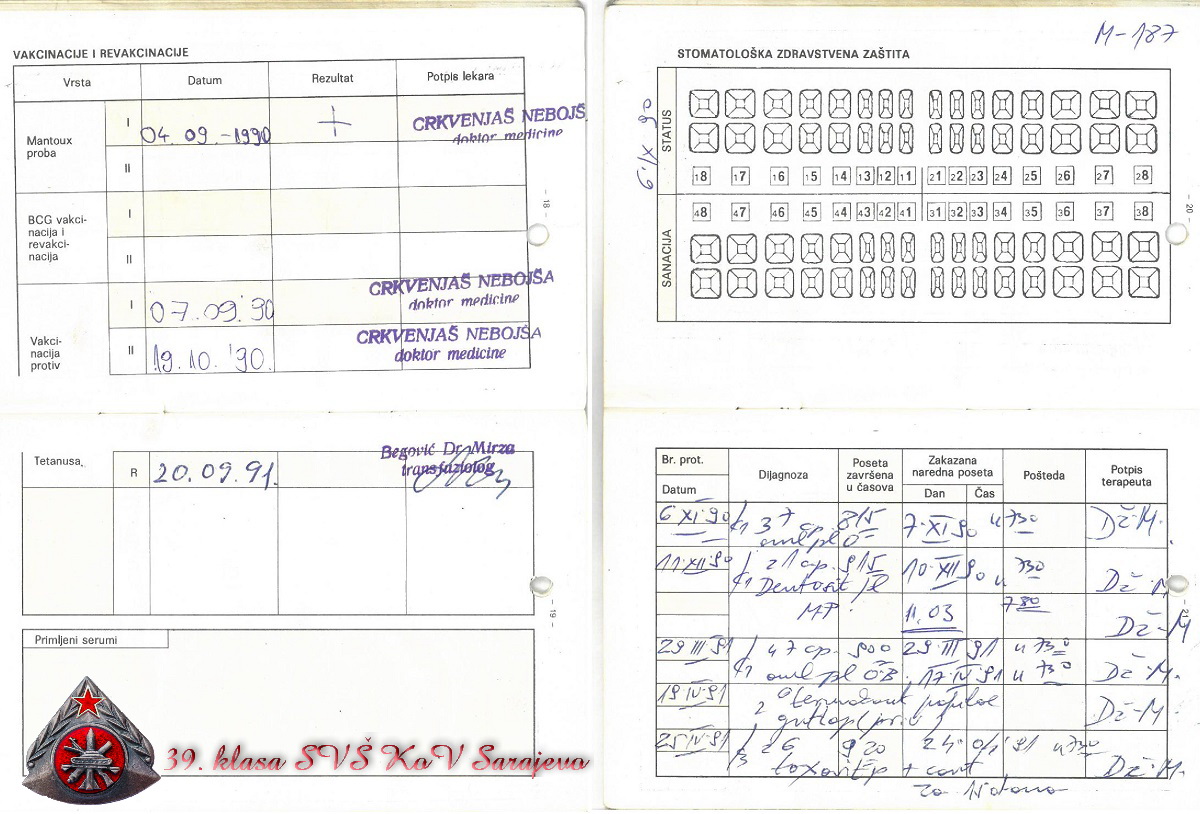 VAKCINACIJE I REVAKCINACIJE
Vrsta Datum Rezultat Potpis lekara
Mantoux proba
I 04. 09. -1990 + CRKVENJAŠ NEBOJŠ
doktor medicine
II
BCG vakci-
nacija i
revakci-
nacija
I
II
Vakci-
nacija
protiv
I 07.09.'90 CRKVENJAŠ NEBOJŠA
doktor medicine
II 19.10.'90. CRKVENJAŠ NEBOJŠA
doktor medicine
- 18 -
Tetanusa
R 20.09.91. Begović Dr. Mirza
transfuziolog
- 19 -
Primljeni serumi
39. klasa SVŠ KoV Sarajevo
M-187
STOMATOLOŠKA ZDRAVSTVENA ZAŠTITA
6·IX 90
STATUS
18 17 16 15 14 13 12 11 21 22 23 24 25 26 27 28
48 47 46 45 44 43 42 41 31 32 33 34 35 36 37 38
SANACIJA
- 20 -
Br. prot.
Datum
Dijagnoza
Poseta
završena
u časova
Zakazana
naredna poseta
Dan Čas
Pošteda
Potpis
terapeuta
6 XI·90 37 815 7·XI 90 u 730 Dž·M.
11·XII·90 21 915 10·XII 90 u 730 Dž·M
11.03 Dž-M
29 III 91 47 900 29·III 91 u 730
17·IV·91 u 730 Dž·M.
19·IV·91 Dž-M
25 IV 91 26 920 u 730 Dž·M.